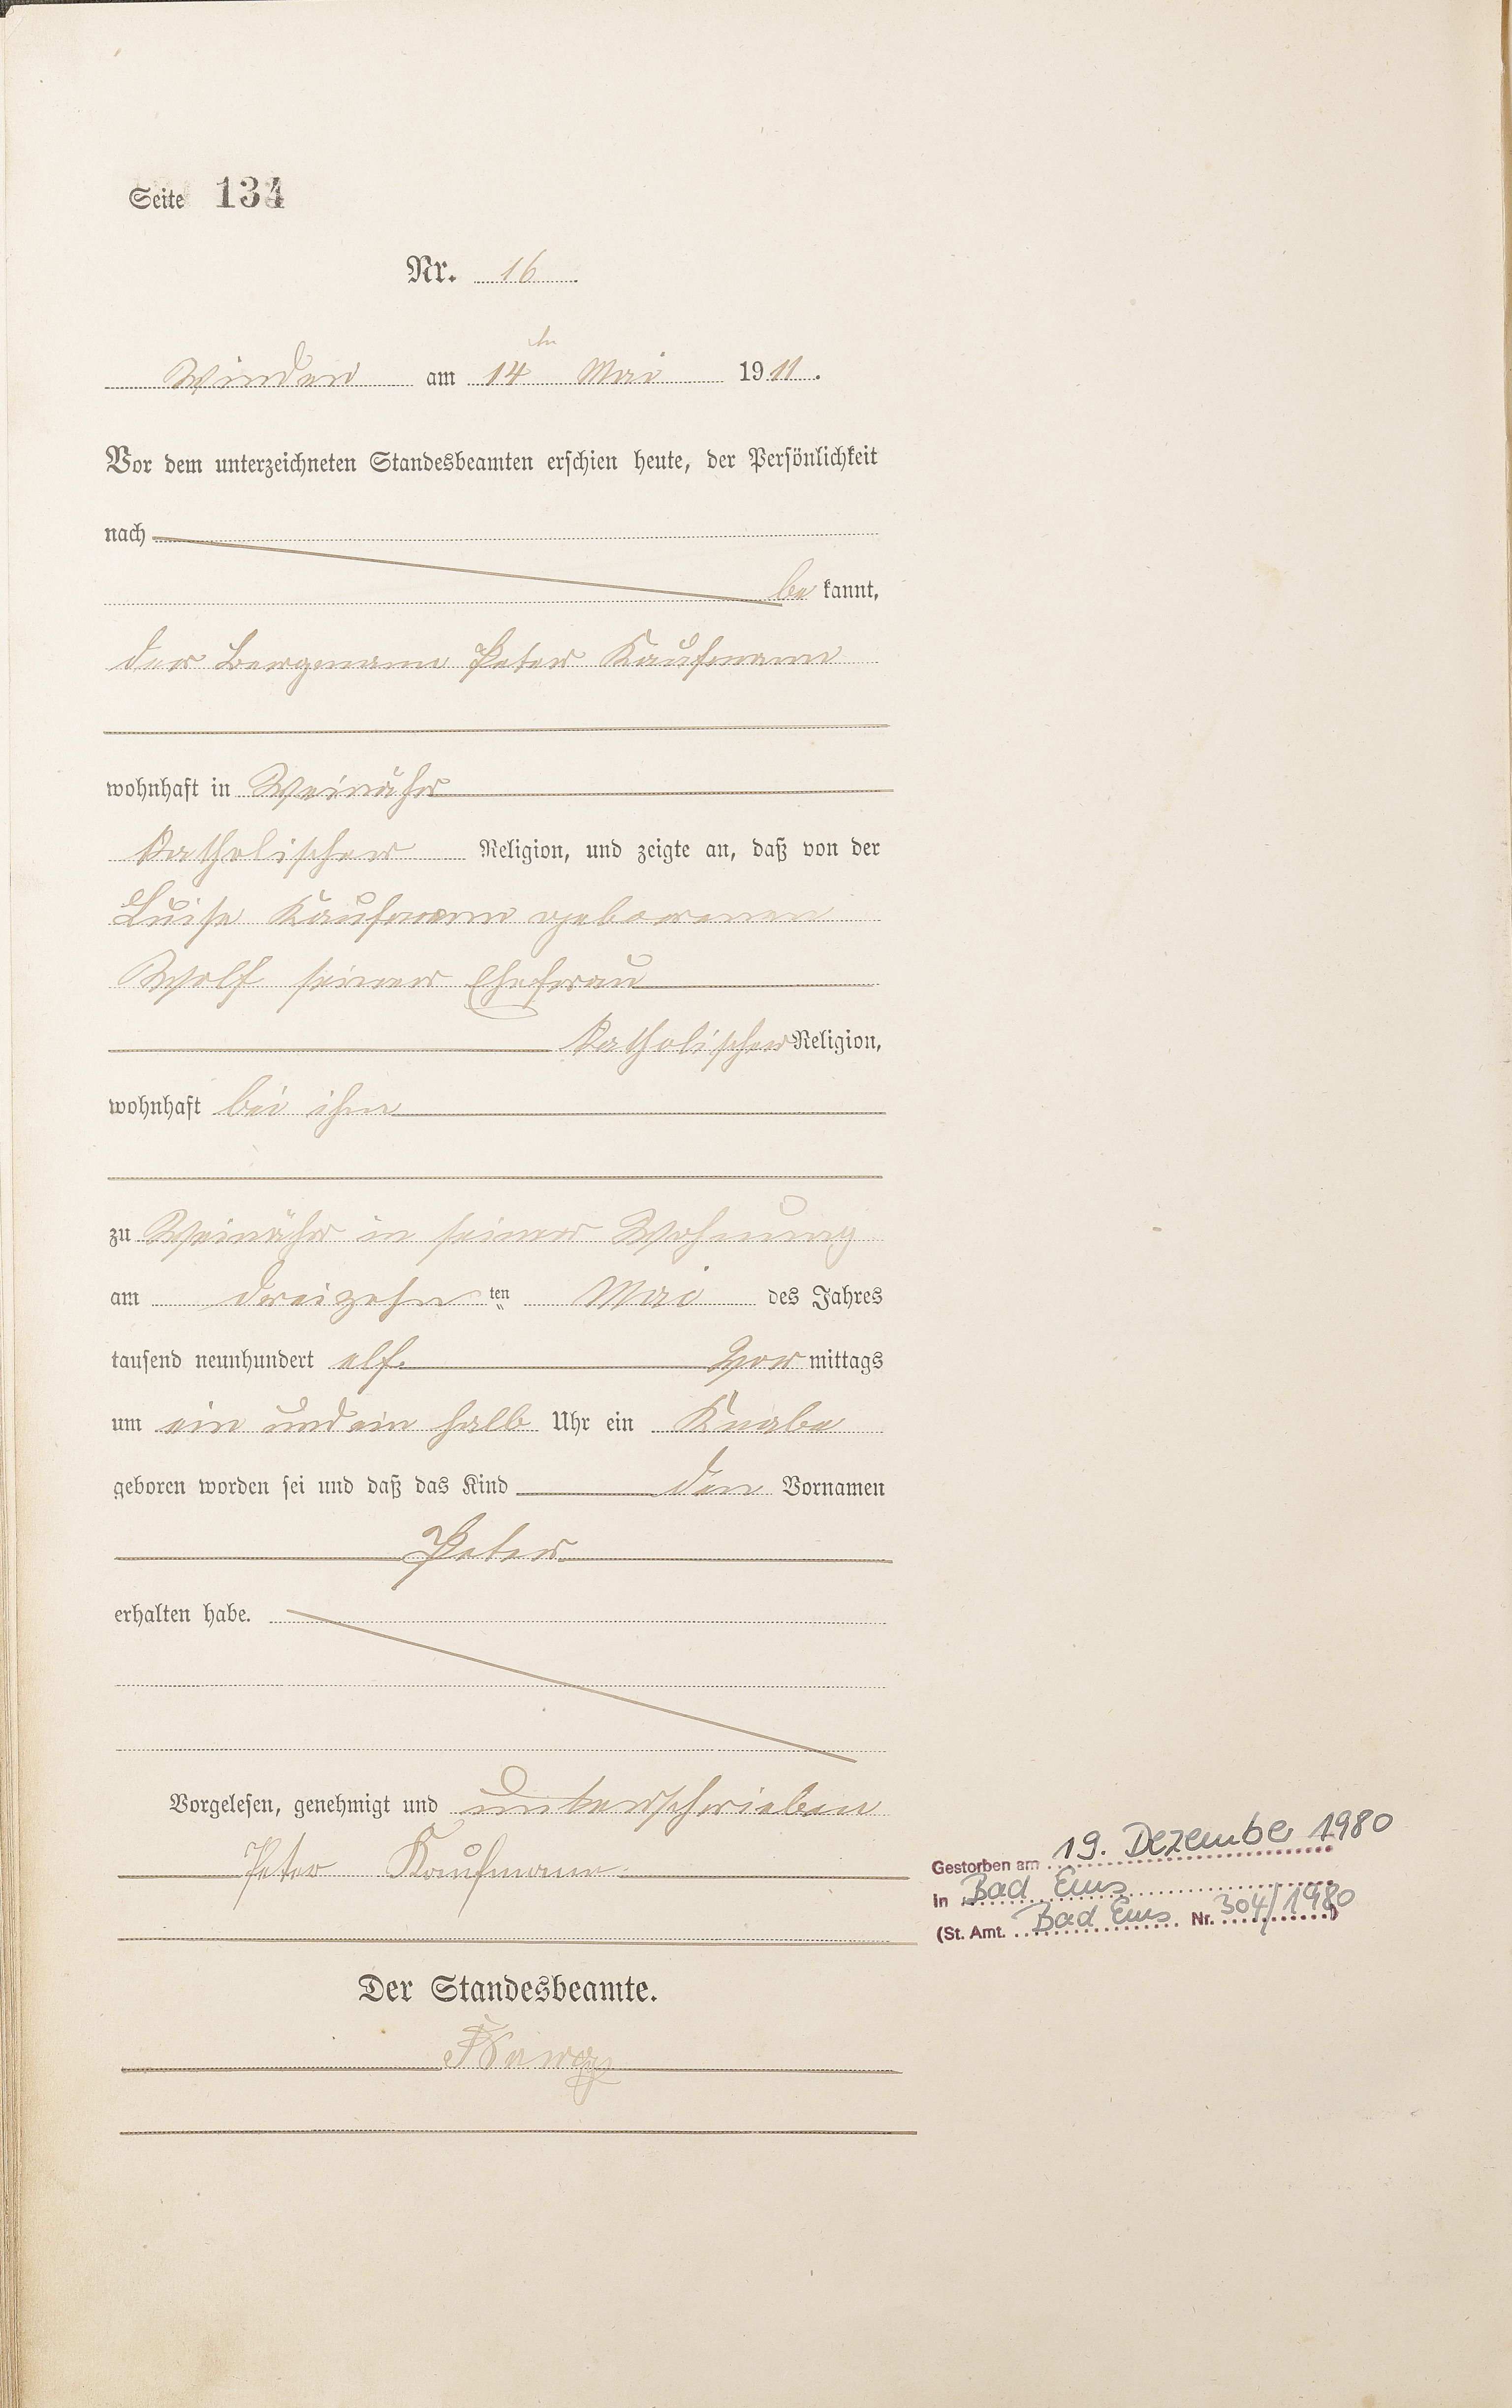 Seite 134
Nr. 16
Winden am 14ten Mai 1911.
Vor dem unterzeichneten Standesbeamten erschien heute, der Persönlichkeit
nach
be kannt,
der Bergmann Peter Kaufmann
wohnhaft in Weinähr
katholischer Religion, und zeigte an, daß von der
Luise Kaufmann geborenen
Wolf seiner Ehefrau
katholischer Religion,
wohnhaft bei ihm
zu Weinähr in seiner Wohnung
am dreizehn ten Mai des Jahres
tausend neunhundert elf. Vor mittags
um ein und ein halb Uhr ein Knabe
geboren worden sei und daß das Kind den Vornamen
Peter
erhalten habe.
Vorgelesen, genehmigt und unterschrieben
Peter Kaufmann
Gestorben am 19. Dezember 1980
in Bad Ems
(St. Amt. Bad Ems Nr. 304/1980)
Der Standesbeamte.